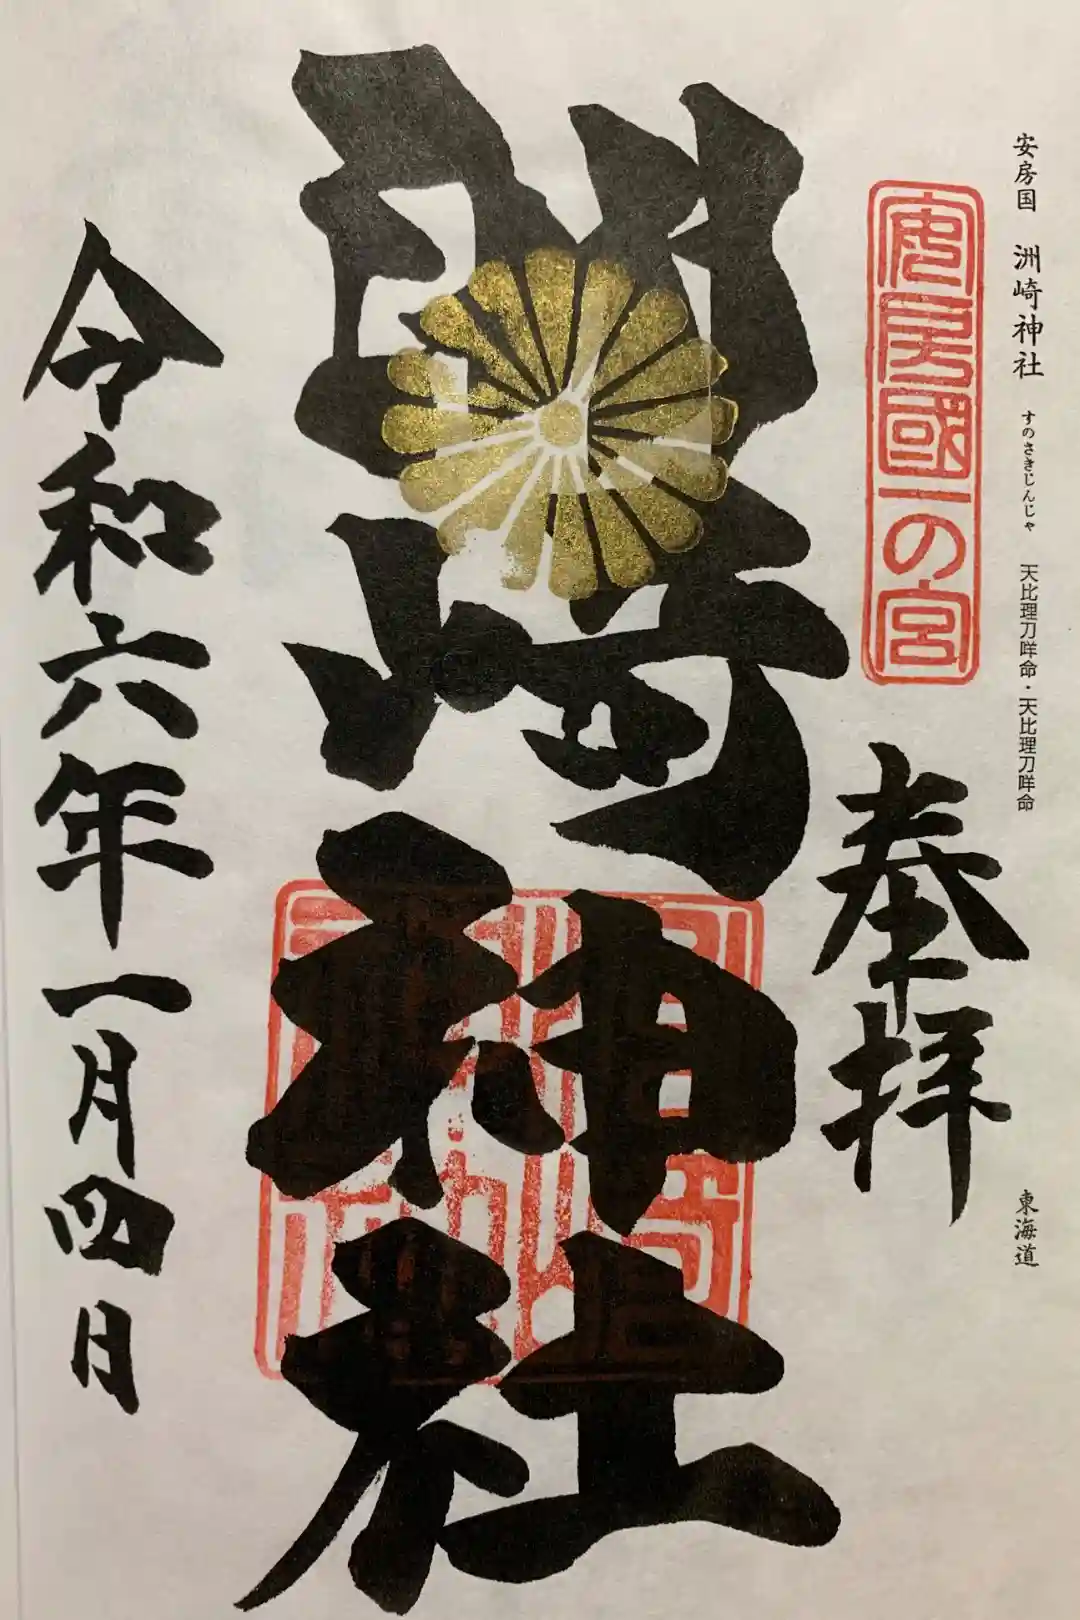 安房国 洲崎神社 すのさきじんじゃ 天比理刀咩命・天比理刀咩命 東海道
安房國一の宮
奉拝
洲崎神社
令和六年一月四日